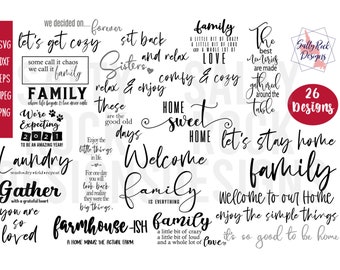 SVG
DXF
EPS
PNG
we decided on... forever
let's get cozy
some call it chaos
we call it
family
FAMILY
where life begins & love never ends
We're
Expecting
2021
TO BE AN AMAZING YEAR!
Laundry
Gather
with a grateful heart
you are
so
loved
sit back
and relax
Sisters
relax & enjoy
these
are the
good old
days
Enjoy the
little things
in life...
For one day
you
look back
and realize
they were the
big things.
HOME
sweet
HOME
Welcome
family
IS EVERYTHING
farmhouse-ISH
A HOME MINUS THE ACTUAL FARM.
family
A LITTLE BIT OF CRAZY
A LITTLE BIT OF LOUD
& A WHOLE LOT OF
LOVE
and relax
comfy & cozy
family
a little bit of crazy
a little bit of loud
and a whole lot of love
The
best
memories
are made
gathered
around the
table
Salty Rick
Designs
26
Designs
let's stay home
family
welcome to our Home
enjoy the simple things
it's so good to be home